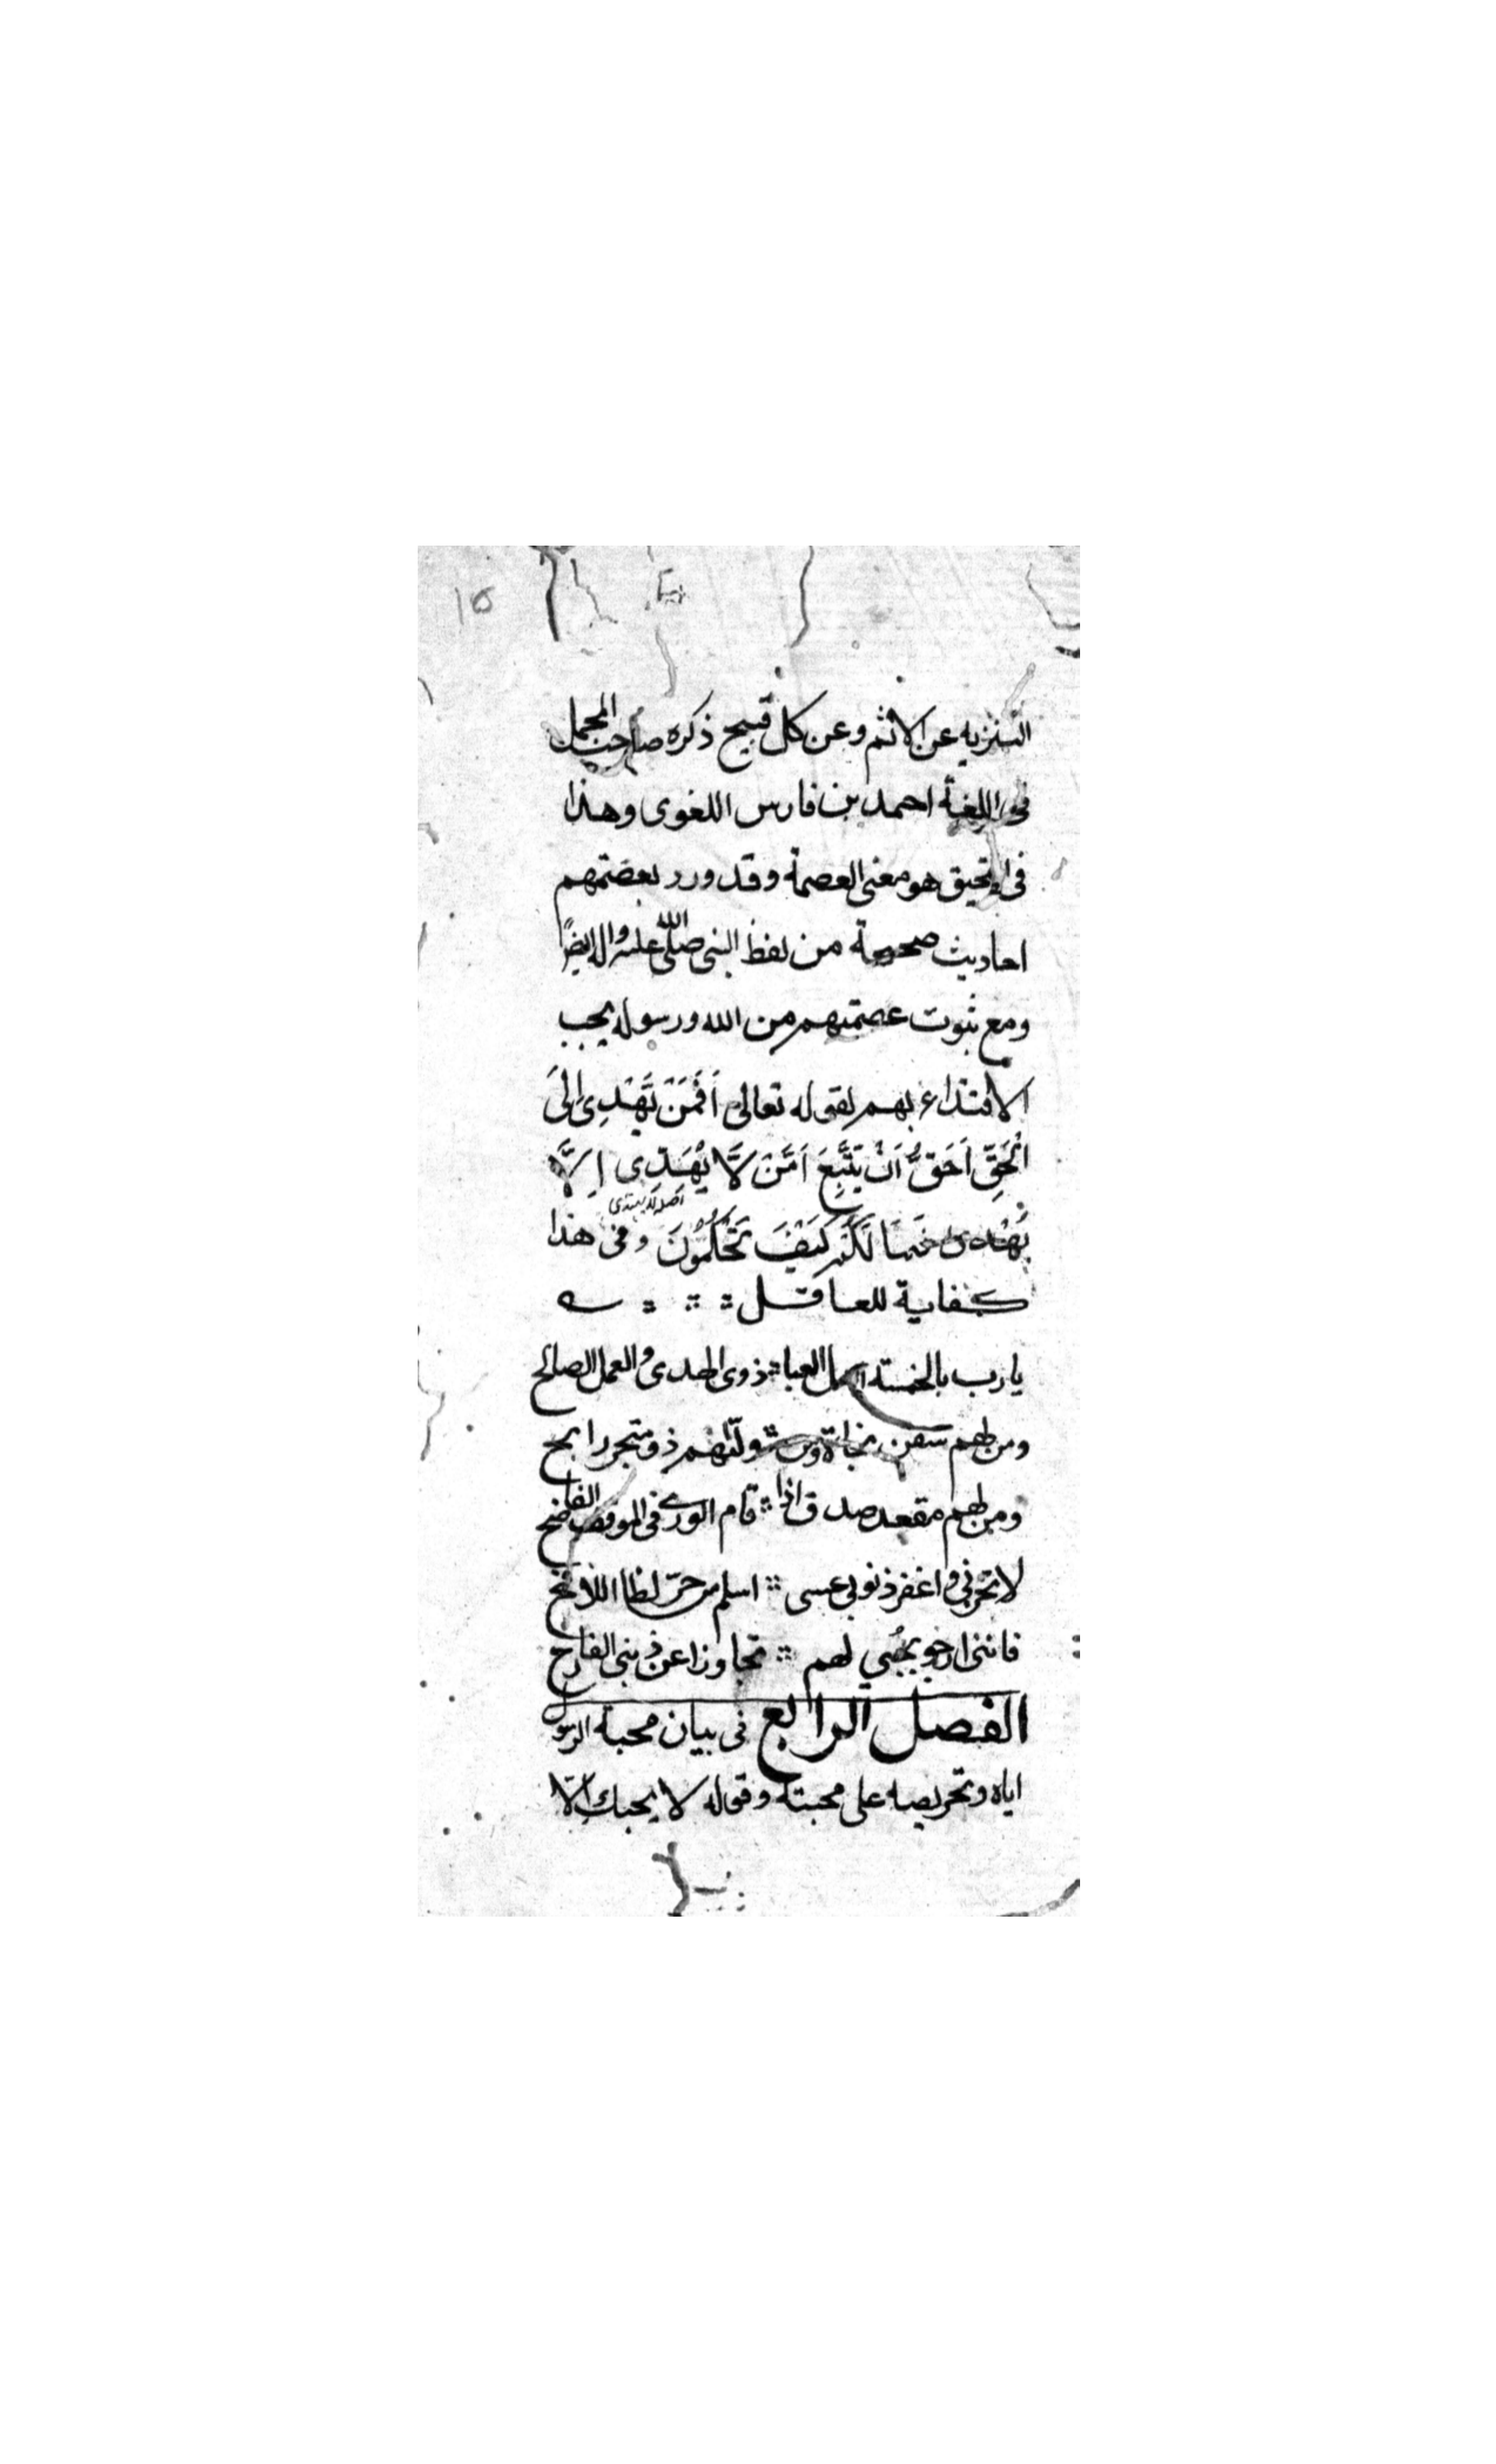 ١٥
التنزيه عن الاثم وعن كل قبيح ذكره صاحب المجمل
فى اللغة احمد بن فارس اللغوى وهذا
فى التحقيق هو معنى العصمة وقد ورد بعصمتهم
احاديث صحيحة من لفظ النبى صلّى الله عليه واله ايضًا
ومع ثبوت عصمتهم من الله ورسوله يجب
الاقتداء بهم لقوله تعالى اَفَمَنْ يَّهْدِى اِلَى
الْحَقِّ اَحَقُّ اَنْ يُّتَّبَعَ اَمَّنْ لَّا يَهِدِّى اِلَّا
اصله يهتدى
يُّهْدٰى فَمَا لَكُمْ كَيْفَ تَحْكُمُوْنَ وفى هذا
كفاية للعاقل
يارب بالخمسة اهل العبا ذوى الهدى والعمل الصالح
ومن هم سفن نجاة ومن ولّاهم ذو متجر رابح
ومن لهم مقعد صدق اذا قام الورى فى الموقف الفاضح
لا تخزنى واغفر ذنوبى عسى اسلم من حرّ لظا اللافح
فاننى ارجو بحُبي لهم تجاوزا عن ذنبى الفادح
الفصل الرابع فى بيان محبة الرسول
اياه وتحريصه على محبته وقوله لا يحبك الّا